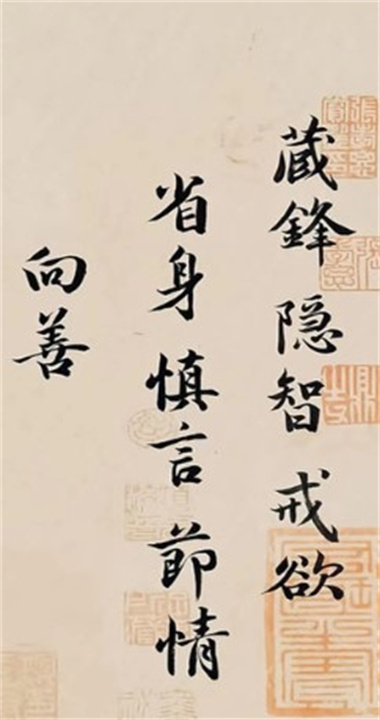 蔵鋒 隐智 戒欲
省身 慎言 節情
向善